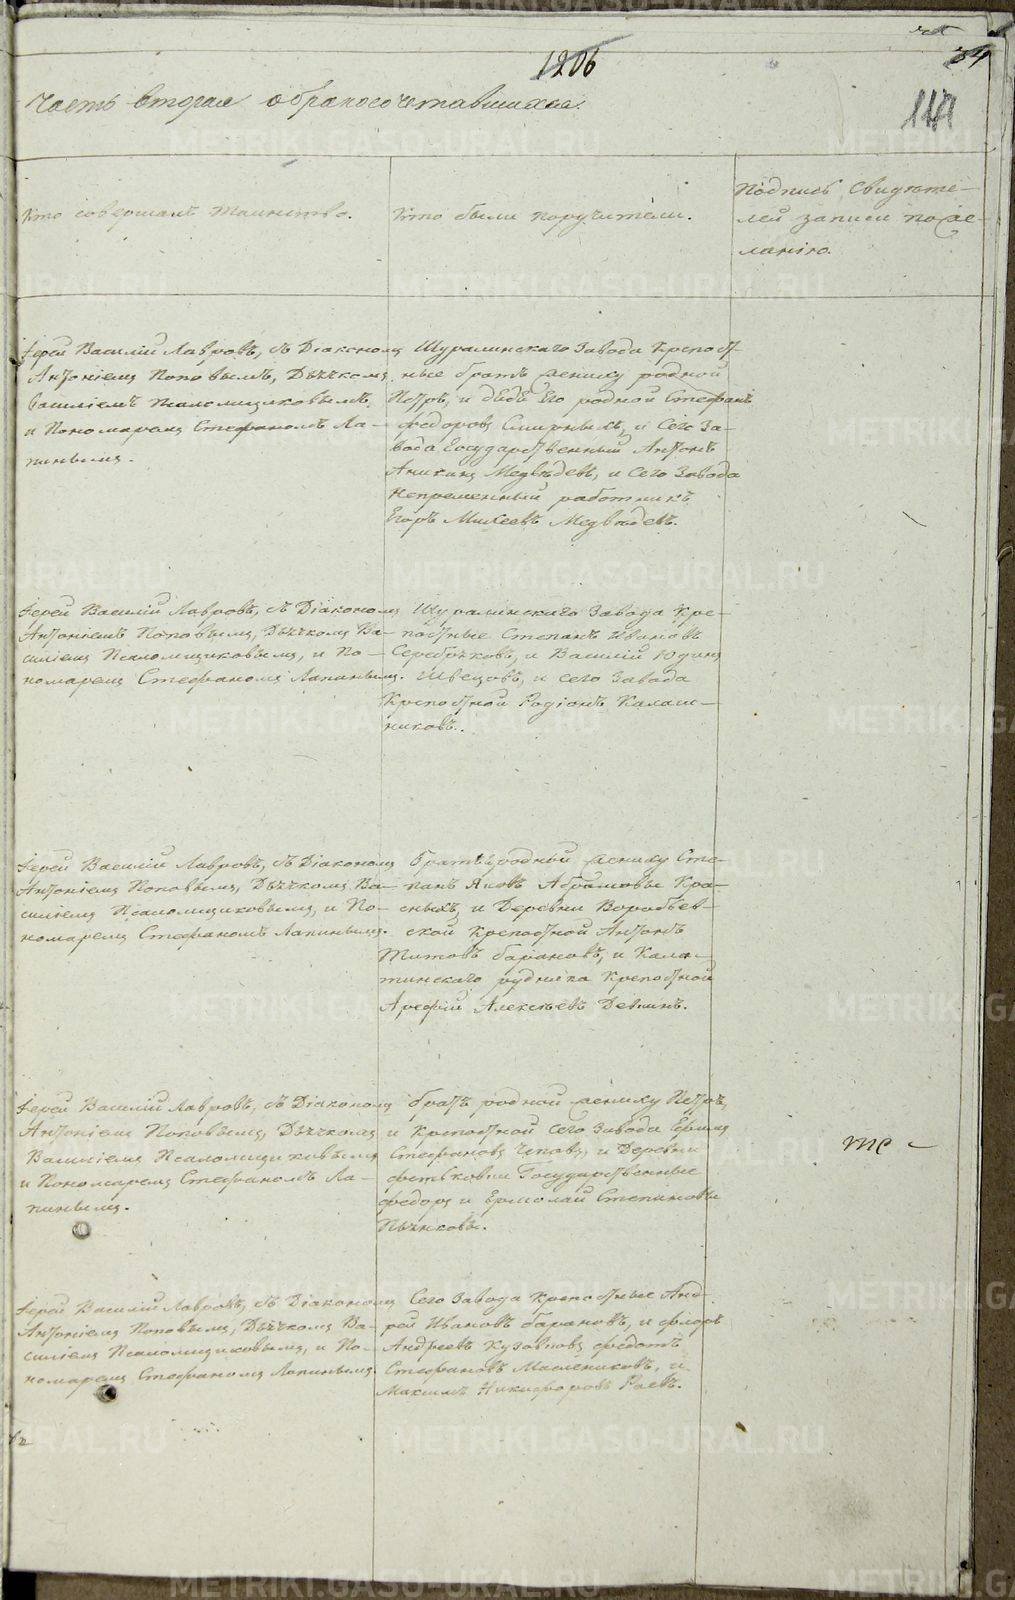 1206
34
Часть вторая о бракосочетавшихся.
Кто совершалъ Таинство.
Кто были поручители.
Подпись свидѣте-
лей записи по же-
ланію.
Іерей Василій Лавровъ, съ Діакономъ
Антоніемъ Поповымъ, Дьячкомъ
Василіемъ Псаломщиковымъ,
и Пономаремъ Стефаномъ Ла-
пинымъ.
Шуралинскаго Завода Крѣпост-
ные братъ жениху родной
Петръ, и дядя Его родной Стефанъ
Федоровъ Смирныхъ, и Сего За-
вода Государственный Антонъ
Аникинъ Медвѣдевъ, и Сего Завода
Непременный работникъ
Егоръ Михеевъ Медвѣдевъ.
Іерей Василій Лавровъ, съ Діакономъ
Антоніемъ Поповымъ, Дьячкомъ Ва-
силіемъ Псаломщиковымъ, и По-
номаремъ Стефаномъ Лапинымъ.
Шуралинскаго Завода Кре-
постные Степанъ Ивановъ
Серебряковъ, и Василій Юдинъ
Швецовъ, и сего Завода
Крепостной Родіонъ Калаш-
никовъ.
Іерей Василій Лавровъ, съ Діакономъ
Антоніемъ Поповымъ, Дьячкомъ Ва-
силіемъ Псаломщиковымъ, и По-
номаремъ Стефаномъ Лапинымъ.
братья родной жениху Сте-
панъ Яковъ Абрамовы Кра-
сныхъ, и Деревни Воробьев-
ской Крепостной Антонъ
Титовъ барановъ, и Кала-
тинскаго рудника Крепостной
Арефій Алексѣевъ Девшинъ.
Іерей Василій Лавровъ, съ Діакономъ
Антоніемъ Поповымъ, Дьячкомъ
Василіемъ Псаломщиковымъ
и Пономаремъ Стефаномъ Ла-
пинымъ.
братъ родной жениху Петръ,
и Крепостной Сего Завода
Стефановъ и Деревни
Государственные
Федоръ и Ермолай Степановы
Пьянковы.
Іерей Василій Лавровъ, съ Діакономъ
Антоніемъ Поповымъ, Дьячкомъ Ва-
силіемъ Псаломщиковымъ, и По-
номаремъ Стефаномъ Лапинымъ.
Сего Завода Крепостные Анд-
рей Ивановъ барановъ, и Флоръ
Андреевъ Кузовновъ, Федотъ
Стефановъ Маслениковъ, и
Максимъ Никифоровъ Раевъ.
METRIKI.GASO-URAL.RU